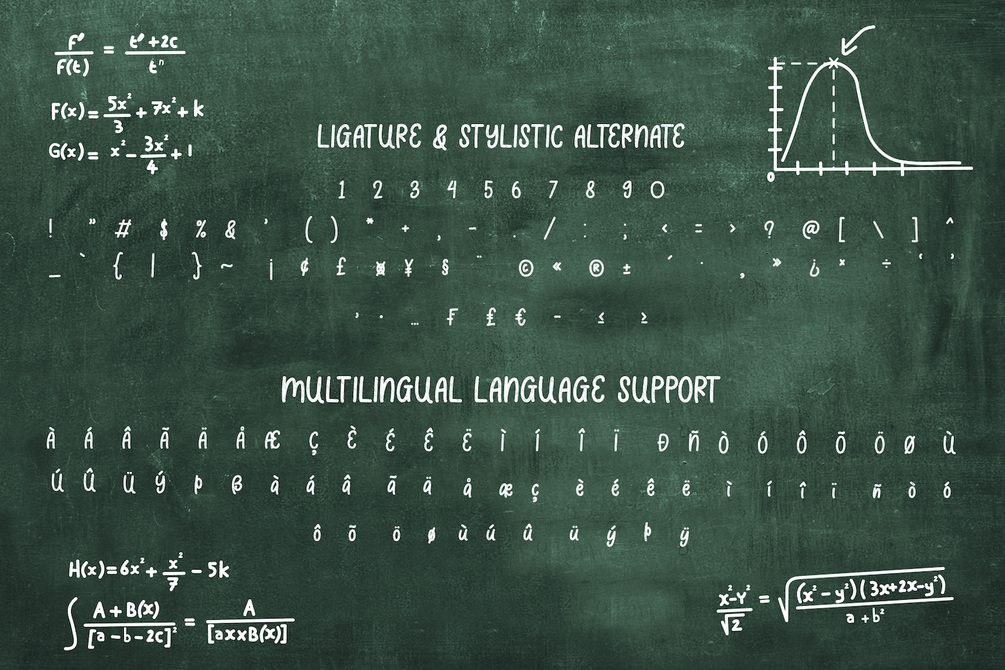 F' / F(t) = t' + 2c / tⁿ
F(x) = 5x² / 3 + 7x² + k
G(x) = x² - 3x² / 4 + 1
0
LIGATURE & STYLISTIC ALTERNATE
1 2 3 4 5 6 7 8 9 0
! " # $ % & ' ( ) * + , - . / : ; < = > ? @ [ \ ] ^
_ ` { | } ~ ¡ ¢ £ ¤ ¥ § ¨ © « ® ± ´ · ¸ » ¿ × ÷ ‘ ’
‚ • … ₣ ₤ € − ≤ ≥
MULTILINGUAL LANGUAGE SUPPORT
À Á Â Ã Ä Å Æ Ç È É Ê Ë Ì Í Î Ï Ð Ñ Ò Ó Ô Õ Ö Ø Ù
Ú Û Ü Ý Þ ß à á â ã ä å æ ç è é ê ë ì í î ï ñ ò ó
ô õ ö ø ù ú û ü ý þ ÿ
H(x) = 6x² + x² / 7 - 5k
∫ A + B(x) / [a - b - 2c]² = A / [axxB(x)]
x² - Y² / √2 = √ (x² - y²)(3x + 2x - y²) / a + b²